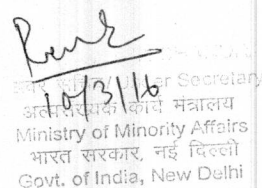 10/3/16
अवर सचिव/Under Secretary
अल्पसंख्यक कार्य मंत्रालय
Ministry of Minority Affairs
भारत सरकार, नई दिल्ली
Govt. of India, New Delhi